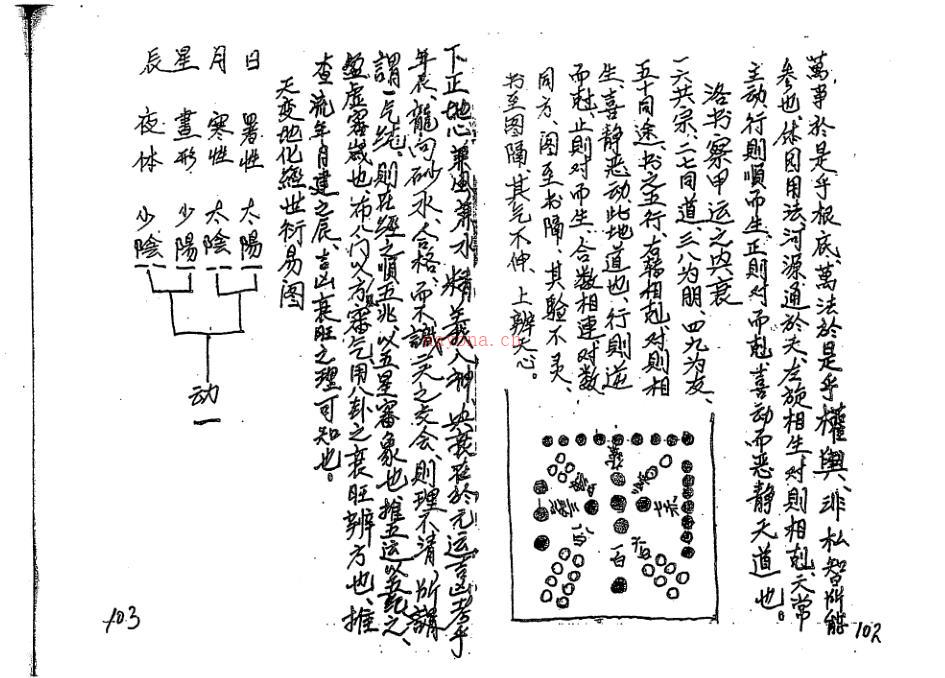 萬事於是乎根底、萬法於是乎權輿、非私智所能
参也、体因用法、河源通於天、左旋相生、对則相尅、天常
主动、行則順而生、正則对而尅、喜动而恶静、天道也。
洛书察甲运之内衰
一六共宗、二七同道、三八为朋、四九为友、
五十同途、书之五行、右轉相尅、对則相
生、喜静恶动、此地道也、行則逆
而尅、止則对而生、合数相連、对数
同方、图至书隔、其驗不灵、
书至图隔、其气不伸、上辨天心。
一白
102
下正地心
精義入神
於元运
年辰、龍向砂水、合格、而不識三元之交会、則理不清、所謂
謂一气纯、則在經之順五兆、以五星審象也、推五运以五纪之、
盈虚審歲也、布八门以方審气、用八卦之衰旺辨方也、推
查流年月建之辰、吉凶衰旺之理可知也。
天变地化經世衍易图
日 暑性 太陽
月 寒性 太陰
星 晝形 少陽
辰 夜体 少陰
动
103